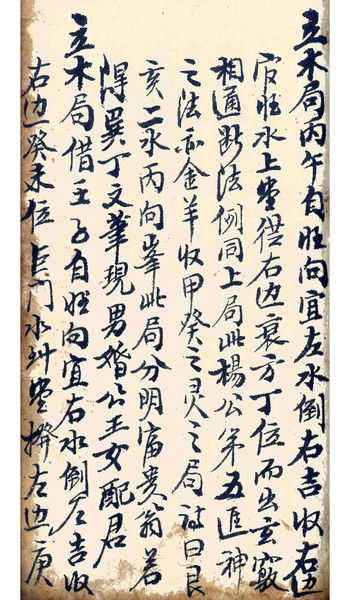 立木局丙午自旺向宜左水倒右吉收右边
官旺水上堂借右边衰方丁位而出玄竅
相通断法例同上局此楊公第五進神
之法亦金羊收甲癸之灵之局诗曰艮
亥二水丙向峯此局分明富贵翁若
得巽丁文筆現男婚公主女配君
立木局借壬子自旺向宜右水倒左吉收
右边癸未位 门水 堂 左边庚